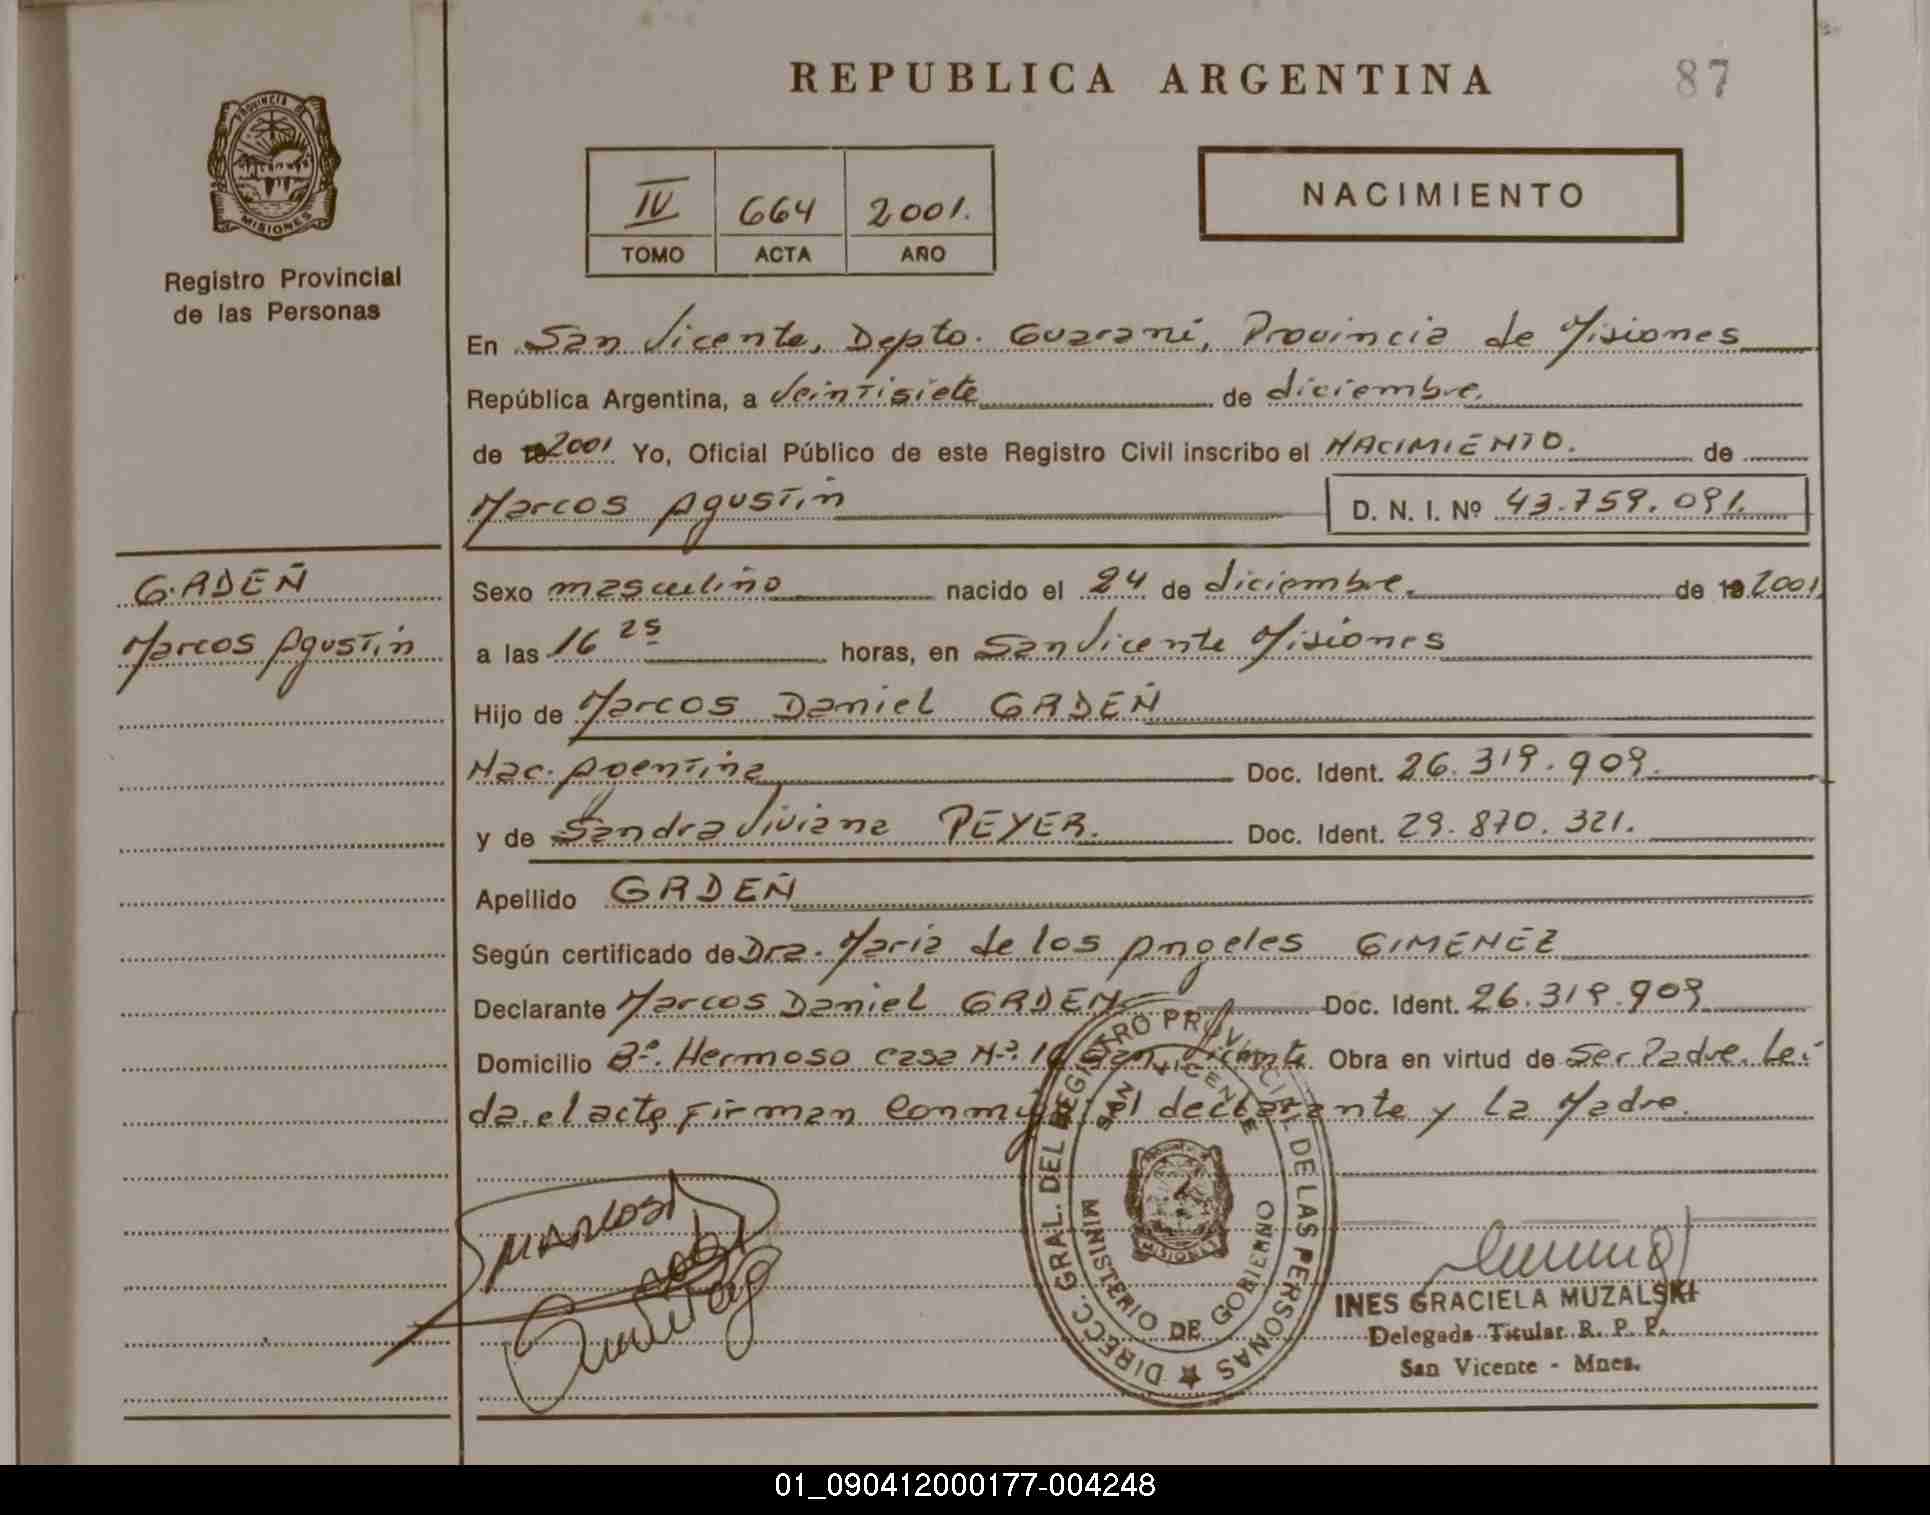 REPUBLICA ARGENTINA
87
PROVINCIA DE
MISIONES
Registro Provincial
de las Personas
IV 664 2001.
TOMO ACTA AÑO
NACIMIENTO
En San Vicente, Depto. Guaraní, Provincia de Misiones
República Argentina, a Veintisiete de diciembre.
de 19 2001 Yo, Oficial Público de este Registro Civil inscribo el NACIMIENTO. de
Marcos Agustín D. N. I. Nº 43.759.091.
GADEÑ
Marcos Agustín
Sexo masculino nacido el 24 de diciembre. de 19 2001.
a las 16 25 horas, en San Vicente Misiones
Hijo de Marcos Daniel GADEÑ
Nac. Agentina Doc. Ident. 26.319.909.
y de Sandra Viviana PEYER. Doc. Ident. 29.870.321.
Apellido GADEÑ
Según certificado de Dra. María de los Angeles GIMENEZ
Declarante Marcos Daniel GADEN Doc. Ident. 26.319.909
Domicilio Bº. Hermoso casa Nº. San Vicente Obra en virtud de Ser Padre. Leí-
da el acta, Firman Conmigo el declarante y la Madre.
DIRECC. GRAL. DEL REGISTRO PROVINCIAL DE LAS PERSONAS
SAN VICENTE
MINISTERIO DE GOBIERNO
MISIONES
INES GRACIELA MUZALSKI
Delegada Titular R. P. P.
San Vicente - Mnes.
01_090412000177-004248